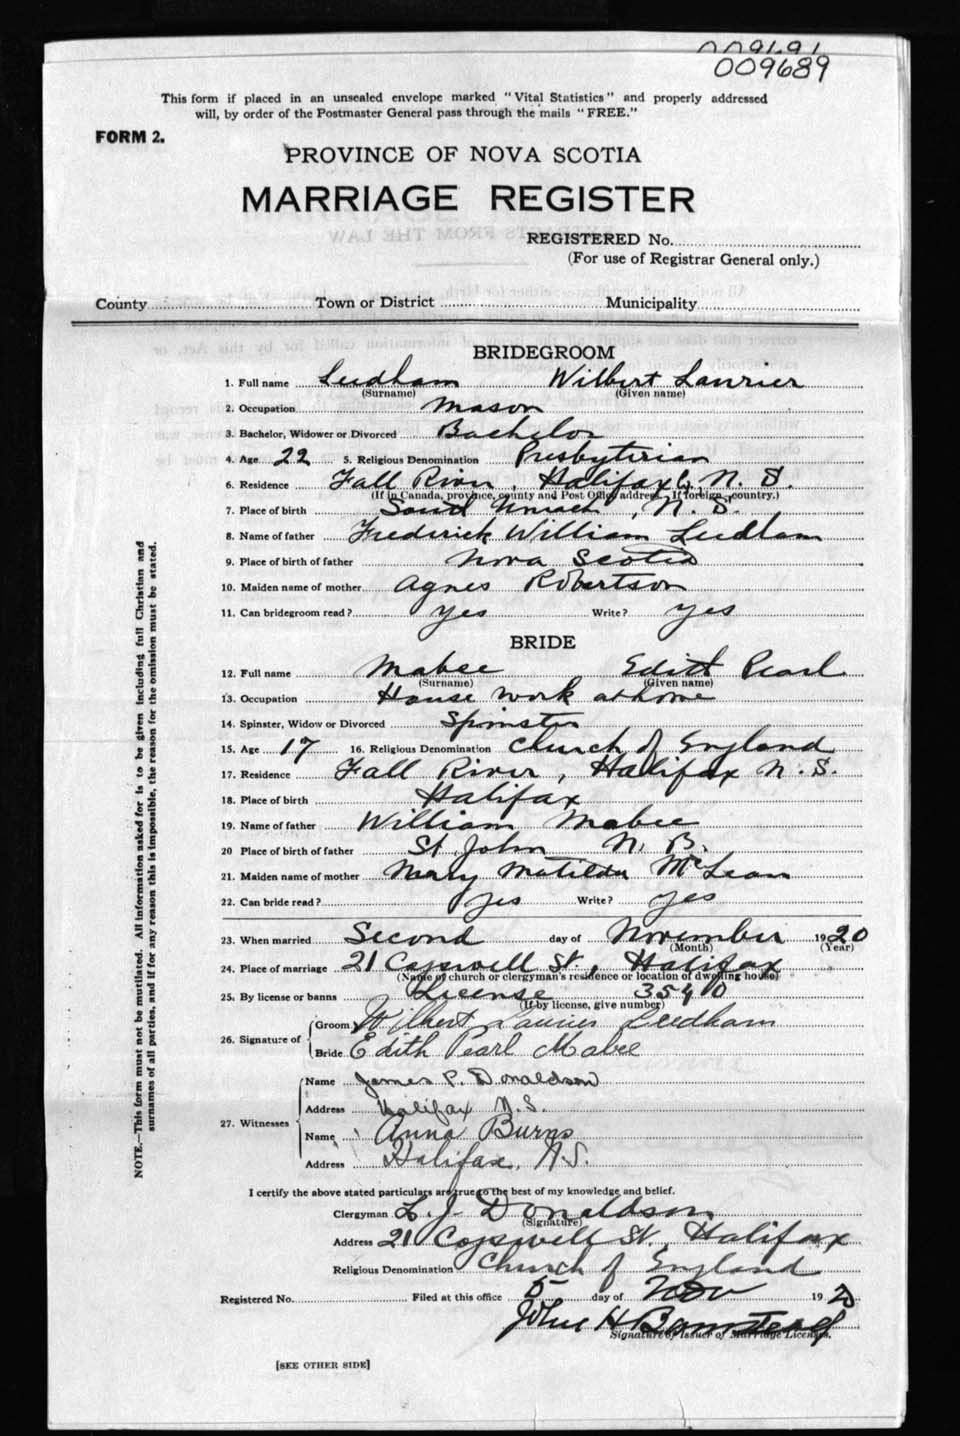 009191
009689
This form if placed in an unsealed envelope marked "Vital Statistics" and properly addressed
will, by order of the Postmaster General pass through the mails "FREE."
FORM 2.
PROVINCE OF NOVA SCOTIA
MARRIAGE REGISTER
EXTRACTS FROM THE LAW
REGISTERED No.
(For use of Registrar General only.)
County Town or District Municipality
BRIDEGROOM
1. Full name Leedham Wilbert Laurier
(Surname) (Given name)
2. Occupation Mason
3. Bachelor, Widower or Divorced Bachelor
4. Age 22 5. Religious Denomination Presbyterian
6. Residence Fall River, Halifax Co, N. S.
(If in Canada, province, county and Post Office address. If foreign, country.)
7. Place of birth N. S.
8. Name of father Frederick William Leedham
9. Place of birth of father Nova Scotia
10. Maiden name of mother Agnes Robertson
11. Can bridegroom read? Yes Write? yes
BRIDE
12. Full name Mabee Edith Pearl
(Surname) (Given name)
13. Occupation House work at home
14. Spinster, Widow or Divorced Spinster
15. Age 17 16. Religious Denomination Church of England
17. Residence Fall River, Halifax N. S.
18. Place of birth Halifax
19. Name of father William Mabee
20 Place of birth of father St. John N. B.
21. Maiden name of mother Mary Matilda McLean
22. Can bride read? Yes Write? yes
23. When married Second day of November 1920
(Month) (Year)
24. Place of marriage 21 Cogswell St., Halifax
(Name of church or clergyman's residence or location of dwelling house)
25. By license or banns License 3540
(If by license, give number)
26. Signature of
Groom Wilbert Laurier Leedham
Bride Edith Pearl Mabee
27. Witnesses
Name James P. Donaldson
Address Halifax N.S.
Name Anna Burns
Address Halifax, N.S.
I certify the above stated particulars are true to the best of my knowledge and belief.
Clergyman L. J. Donaldson
(Signature)
Address 21 Cogswell St., Halifax
Religious Denomination Church of England
Registered No. Filed at this office 5 day of Nov 1920
John H Barnstead
Signature of Issuer of Marriage Licenses.
[SEE OTHER SIDE]
NOTE.—This form must not be mutilated. All information asked for is to be given including full Christian and
surnames of all parties, and if for any reason this is impossible, the reason for the omission must be stated.